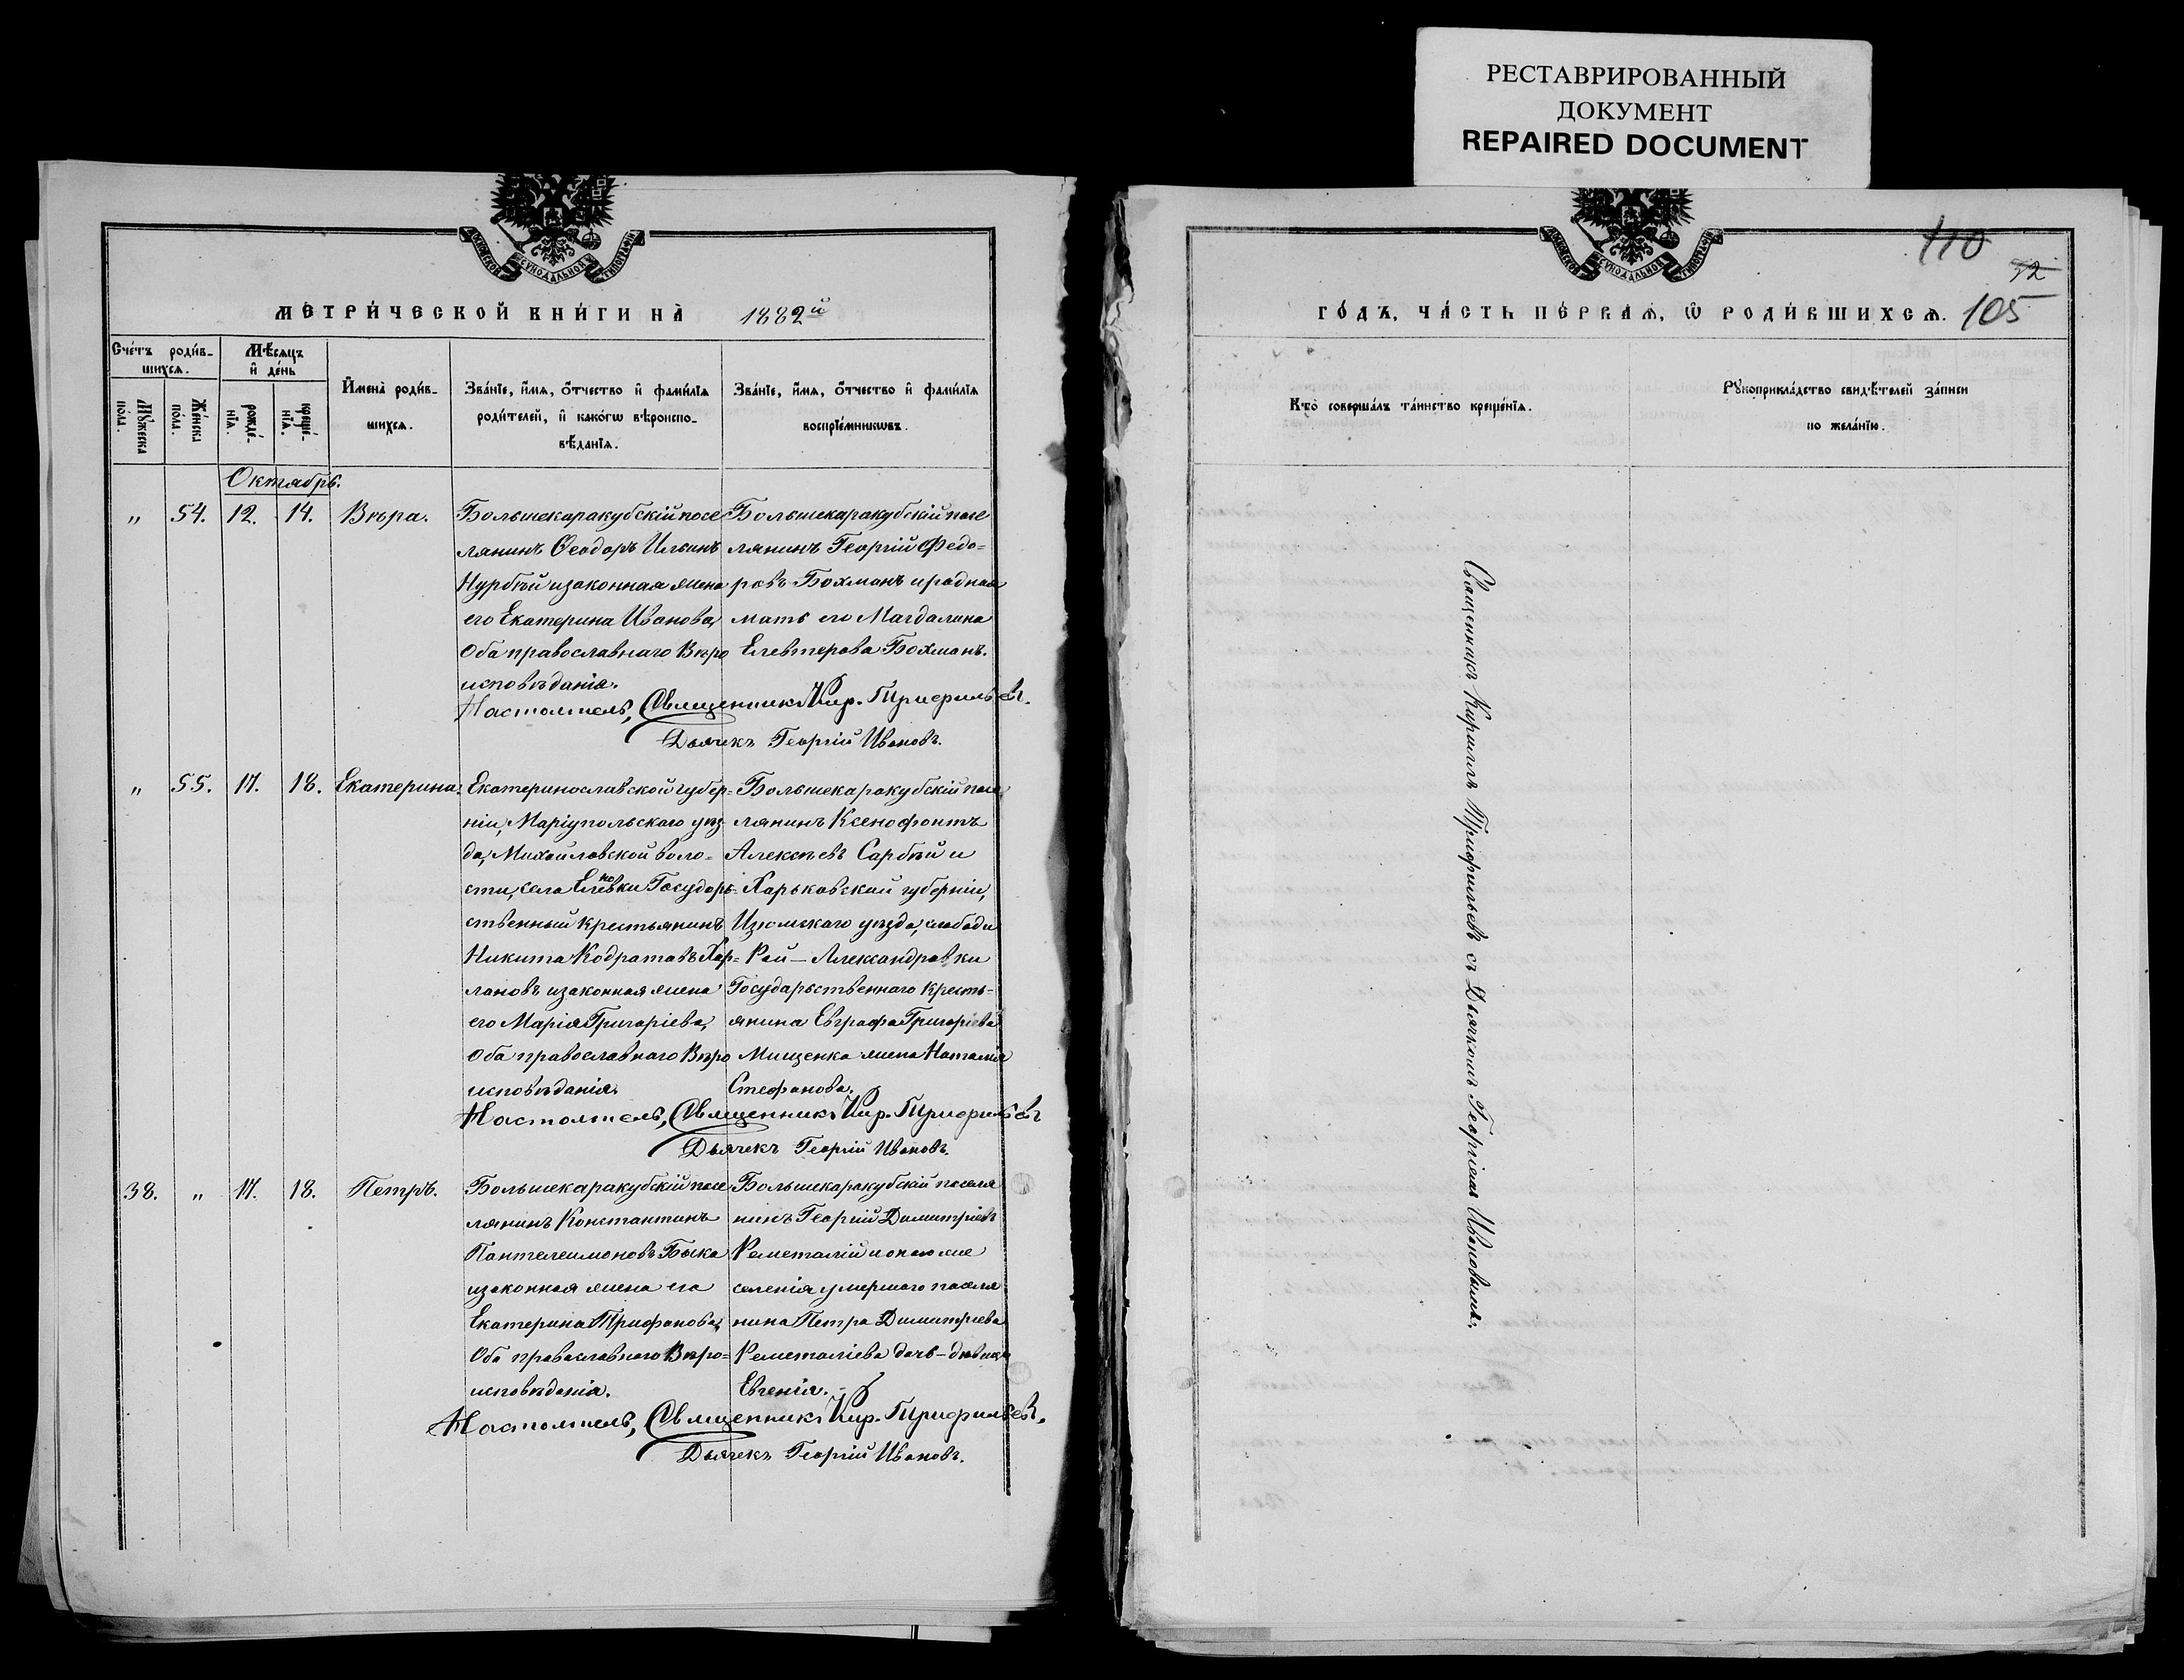 РЕСТАВРИРОВАННЫЙ
ДОКУМЕНТ
REPAIRED DOCUMENT
МОСКОВСКОЙ СѴНОДАЛЬНОЙ ТИПОГРАФІИ
МЕТРИ́ЧЕСКОЙ КНИ́ГИ НА̀ 1882й
Сче́тъ роди́в-
шихсѧ.
Мѣ́сѧцъ
и҆ де́нь
Мꙋ́жеска
по́ла.
Же́нска
по́ла.
рожде́-
нїѧ.
креще́-
нїѧ.
И҆мена̀ роди́в-
шихсѧ.
Зва́нїе, и҆́мѧ, ѻ҆́тчество и҆ фами́лїѧ
роди́телей, и҆ како́гѡ вѣроиспо-
вѣ́данїѧ.
Зва́нїе, и҆́мѧ, ѻ҆́тчество и҆ фами́лїѧ
воспрїе́мникѡвъ.
Октябрь.
" 54. 12. 14. Вѣра.
Большекаракубскій посе
лянинъ Ѳеодоръ Ильинъ
Нурбѣй и законная жена
его Екатерина Иванова,
Оба православнаго Вѣро
исповѣданія.
Большекаракубскій посе
лянинъ Георгій Федо=
ровъ Бохманъ и родная
мать его Магдалина
Елевтерова Бохманъ.
Настоятель, Священникъ Кир. Трифильевъ.
Дьячекъ Георгій Ивановъ.
" 55. 17. 18. Екатерина.
Екатеринославской губер=
ніи, Маріупольскаго уѣз
да, Михайловской воло=
сти, села Еленовки Государ=
ственный крестьянинъ
Никита Кодратовъ Хар=
лановъ и законная жена
его Марія Григоріева,
Оба православнаго Вѣро
исповѣданія.
Большекаракубскій посе
лянинъ Ксенофонтъ
Алексѣевъ Сарбѣй и
Харьковской губерніи,
Изюмскаго уѣзда, слободи
Рай-Александровки
Государственнаго кресть=
янина Евграфа Григоріева
Мищенка жена Наталія
Стефанова.
Настоятель, Священникъ Кир. Трифильевъ
Дьячекъ Георгій Ивановъ.
38. " 17. 18. Петръ.
Большекаракубскій посе
лянинъ Константинъ
Пантелеимоновъ Быка
и законная жена его
Екатерина Трифонова,
Оба православнаго Вѣро=
исповѣданія.
Большекаракубскій поселя
нинъ Георгій Димитріевъ
Кеметалій и оного же
селенія умершаго поселя
нина Петра Димитріева
Кеметаліева дочь-дѣвица
Евгенія.
Настоятель, Священникъ Кир. Трифильевъ.
Дьячекъ Георгій Ивановъ.
МОСКОВСКОЙ СѴНОДАЛЬНОЙ ТИПОГРАФІИ
110
52
105
ГО́ДЪ, ЧА́СТЬ ПЕ́РВАѦ, Ѽ РОДИ́ВШИХСѦ.
Кто̀ соверша́лъ та́инство креще́нїѧ.
Рꙋкоприкла́дство свидѣ́телей за́писи
по жела́нїю.
Священникъ Кириллъ Трифильевъ съ Дьячкомъ Георгіемъ Ивановымъ.